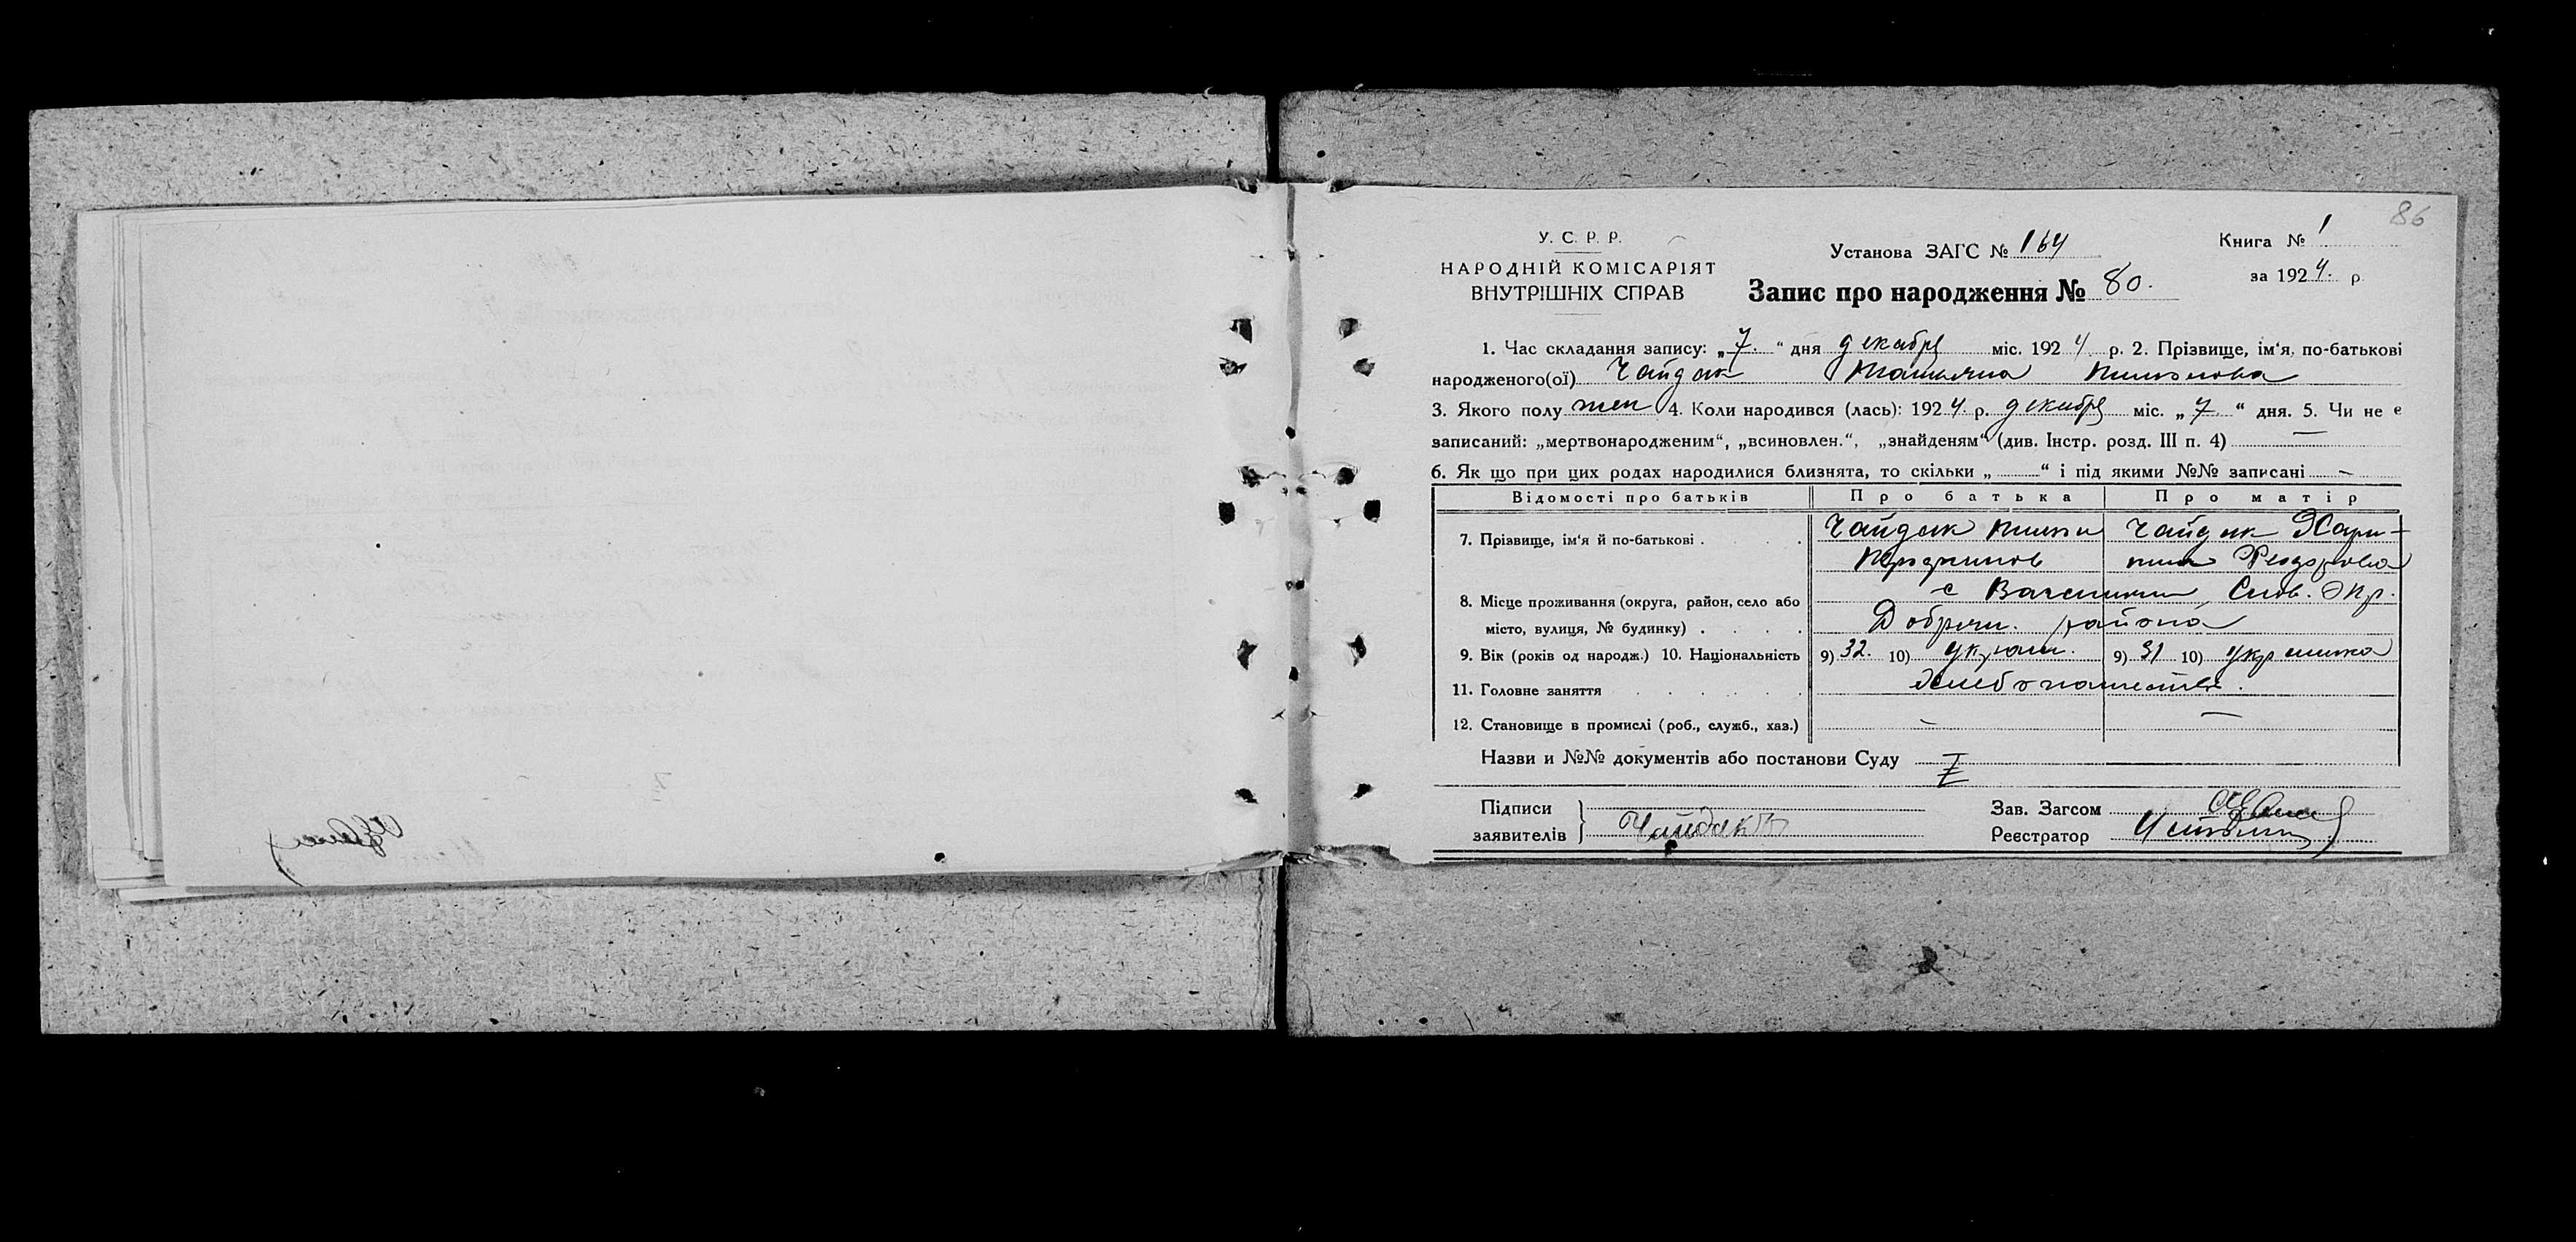 86
У. С. Р. Р.
НАРОДНІЙ КОМІСАРІЯТ
ВНУТРІШНІХ СПРАВ
Установа ЗАГС № 164
Запис про народження № 80.
Книга № 1
за 1924. р.
1. Час складання запису: „7.“ дня декабря міс. 1924 р. 2. Прізвище, ім‘я, по-батькові
народженого(ої) Чайдак Татьяна
3. Якого полу жен 4. Коли народився (лась): 1924. р. декабря міс. „7“ дня. 5. Чи не є
записаний: „мертвонародженим“, „всиновлен.“, „знайденям“ (див. Інстр. розд. III п. 4) —
6. Як що при цих родах народилися близнята, то скільки „ “ і під якими №№ записані —
Відомості про батьків Про батька Про матір
7. Прізвище, ім‘я й по-батькові . . Чайдак Чайдак Хари-
тина Феодорова
8. Місце проживання (округа, район, село або с
місто, вулиця, № будинку) . . . . района
9. Вік (років од народж.) 10. Національність 9) 32. 10) украин. 9) 31 10) украинка
11. Головне заняття . . . . . . Хлебопашество.
12. Становище в промислі (роб., служб., хаз.) — —
Назви и №№ документів або постанови Суду
Підписи
заявителів } Чайдак
Зав. Загсом
Реєстратор